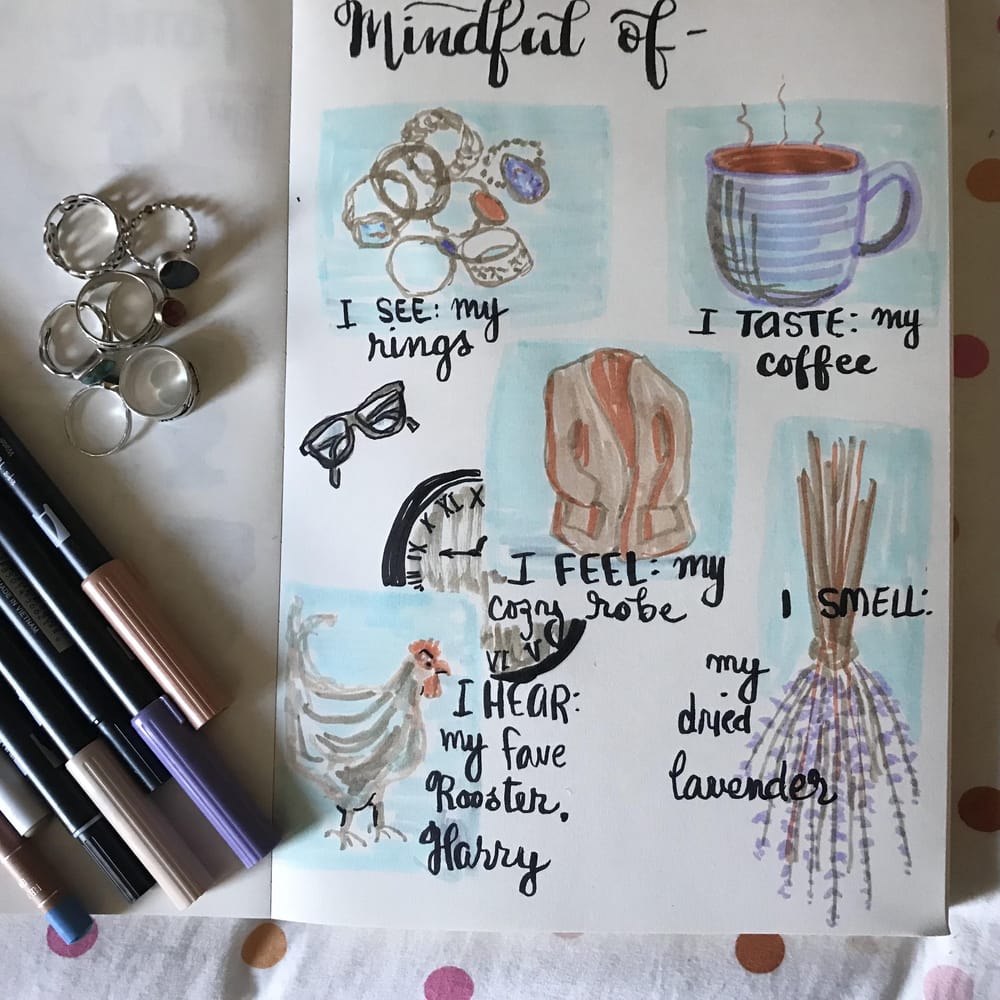 Mindful of -
I SEE: my
rings
I TASTE: my
coffee
I FEEL: my
cozy robe
I SMELL:
my
dried
lavender
I HEAR:
my fave
Rooster.
Harry
X
XI
X
IX
VI V
MADE IN VIETNAM